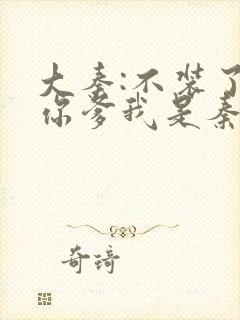 大秦:不装了
你爹我是秦
奇琦